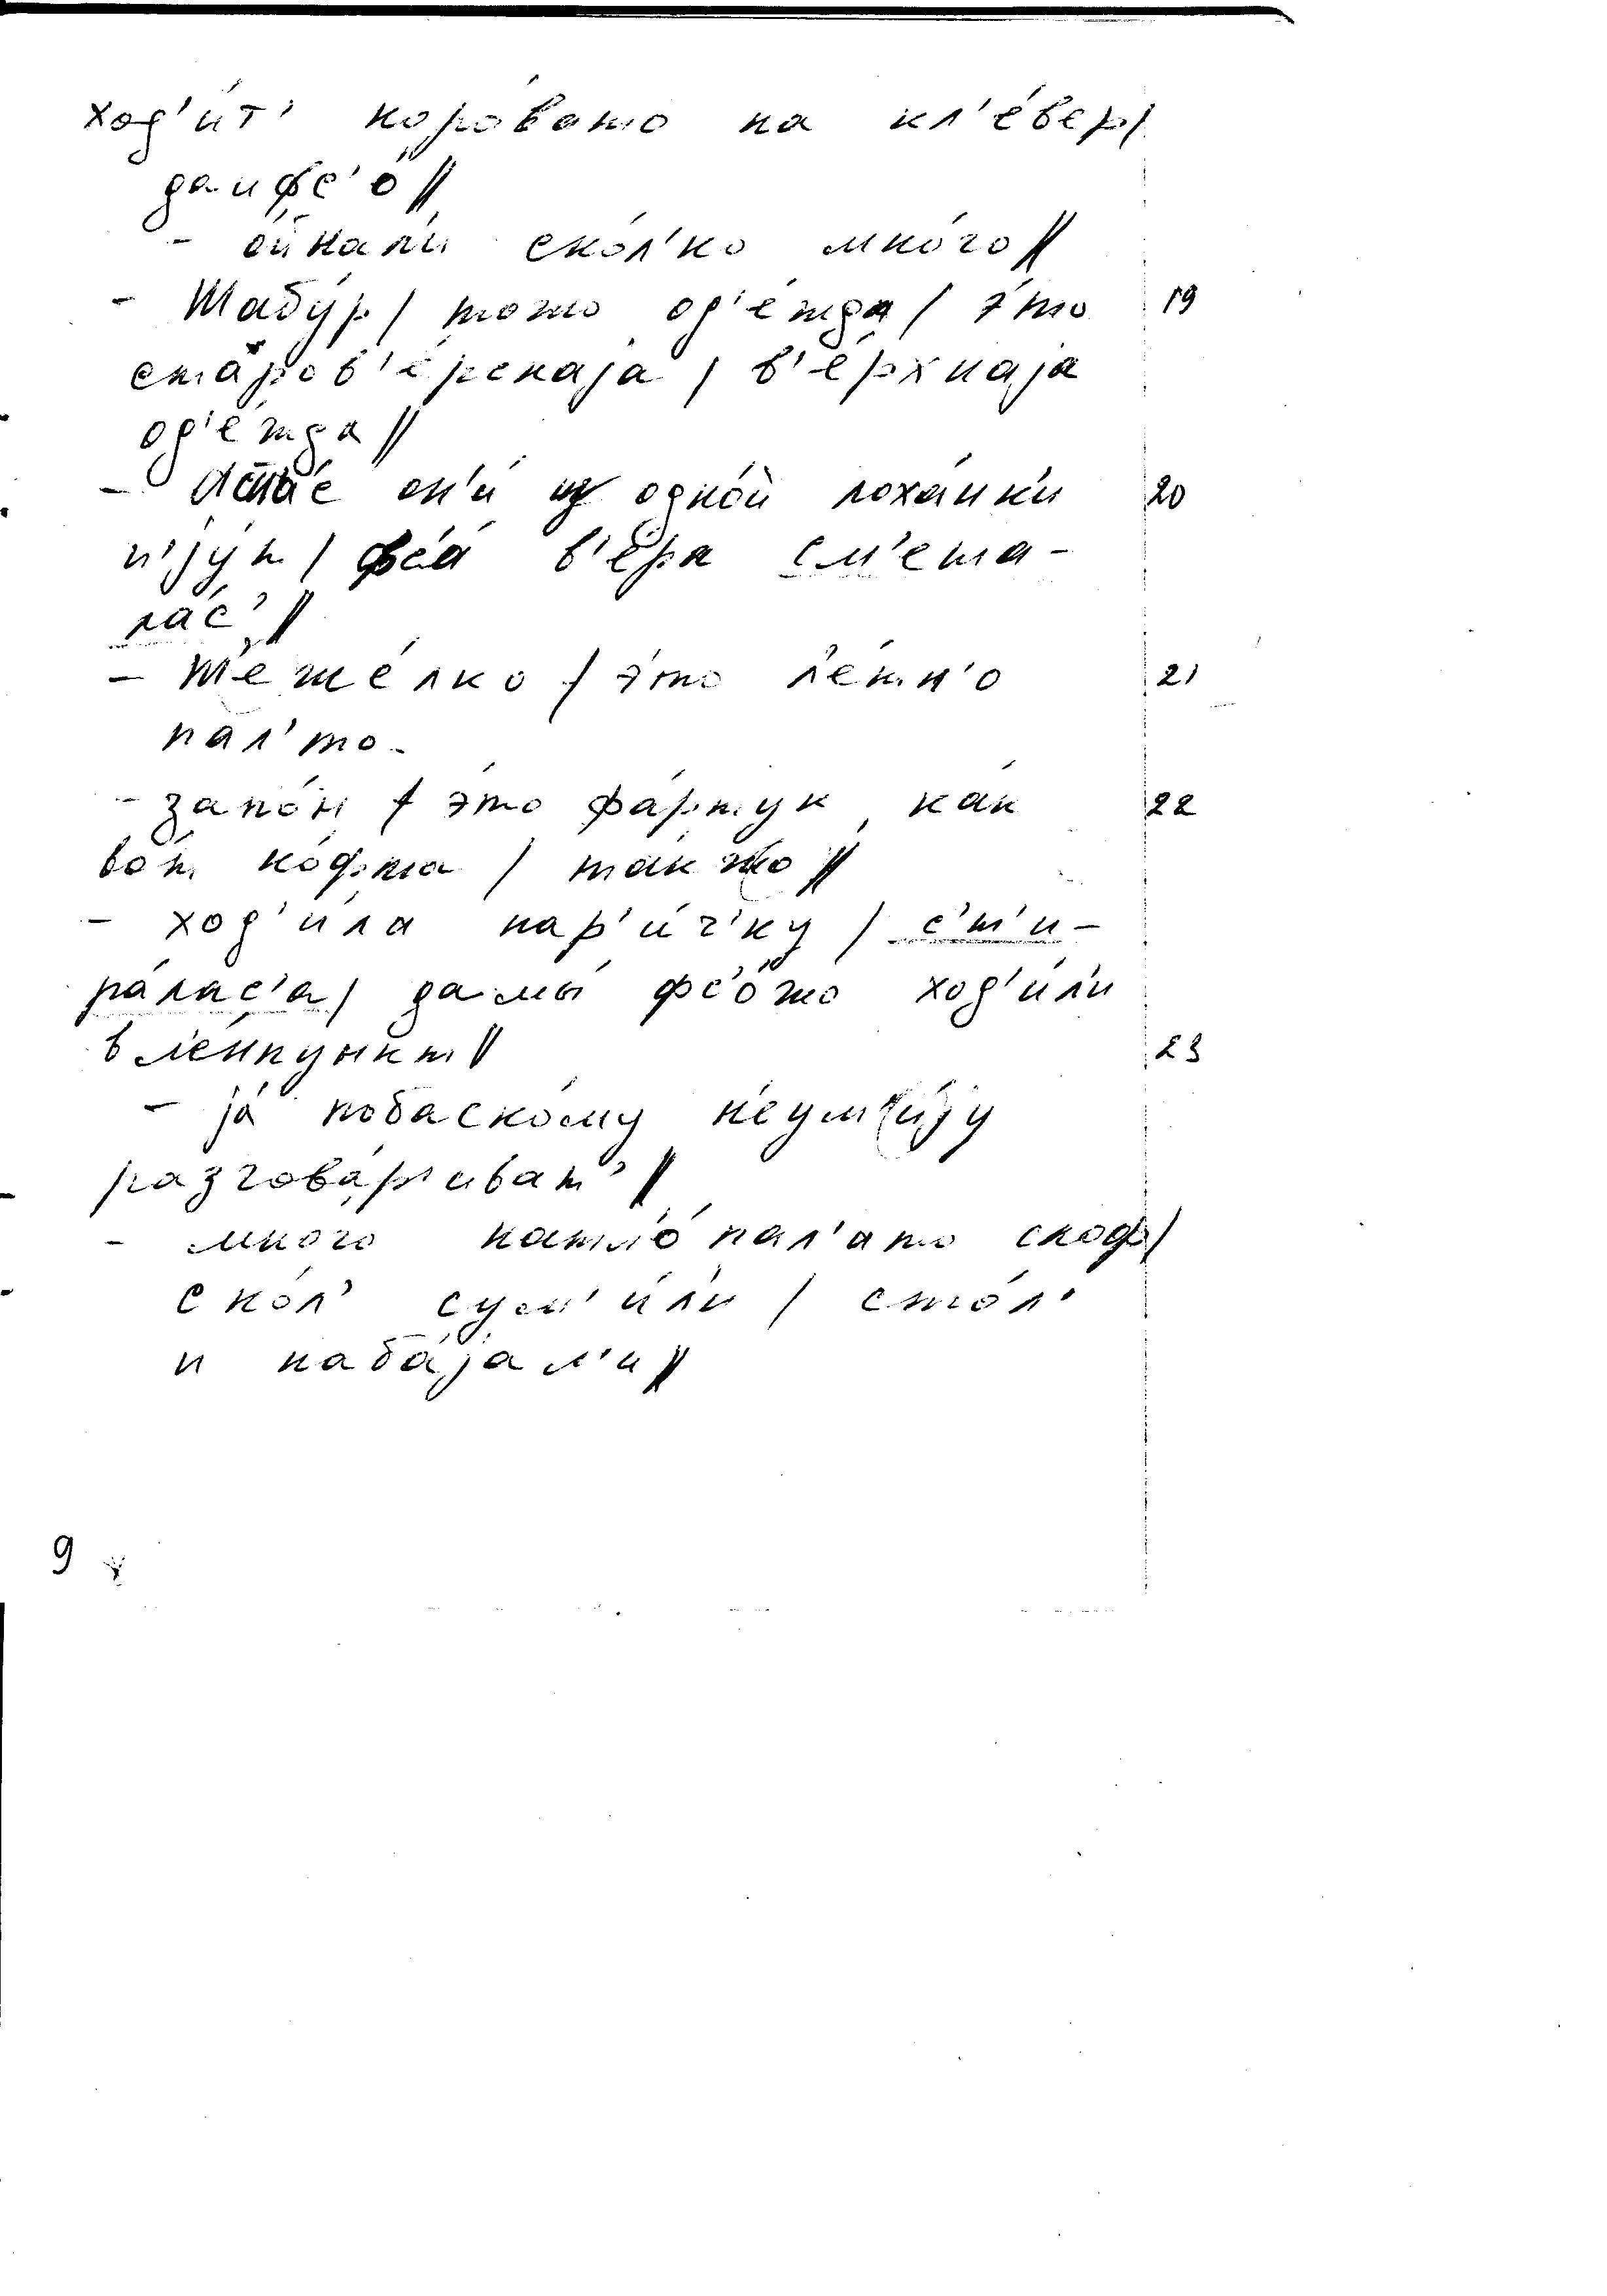 ход'и́т' коро́вато на кл'е́вер/
даифс'о́//
- ойнали́ ско́л'ко мно́го//
- Шабу́р/ тожо од'е́жда/ э́то 19
старов'е́рскаjа / в'е́рхнаjа
од'е́жда//
он'и́ из одно́й лоха́нки 20
п'jу́т/ фс'а́ в'е́ра см'ешa-
ла́с'//
- Шеше́лко / э́то ле́тн'о 21
пал'то.
- запо́н / э́то фа́ртук, ка́к 22
во́т ко́фта / та́кжо//
- ход'и́ла нар'и́ч'ку / с'т'и-
ра́лас'а/ да мы́ фс'о́жо ход'и́ли
в ме́нпункт// 23
- jа́ побаско́му неум'и́jу
разгова́р'иват'//
- мно́го нашло́ нал'ато скоф/
ско́л' сум'и́ли / сто́л'
и наба́jал'и//
9